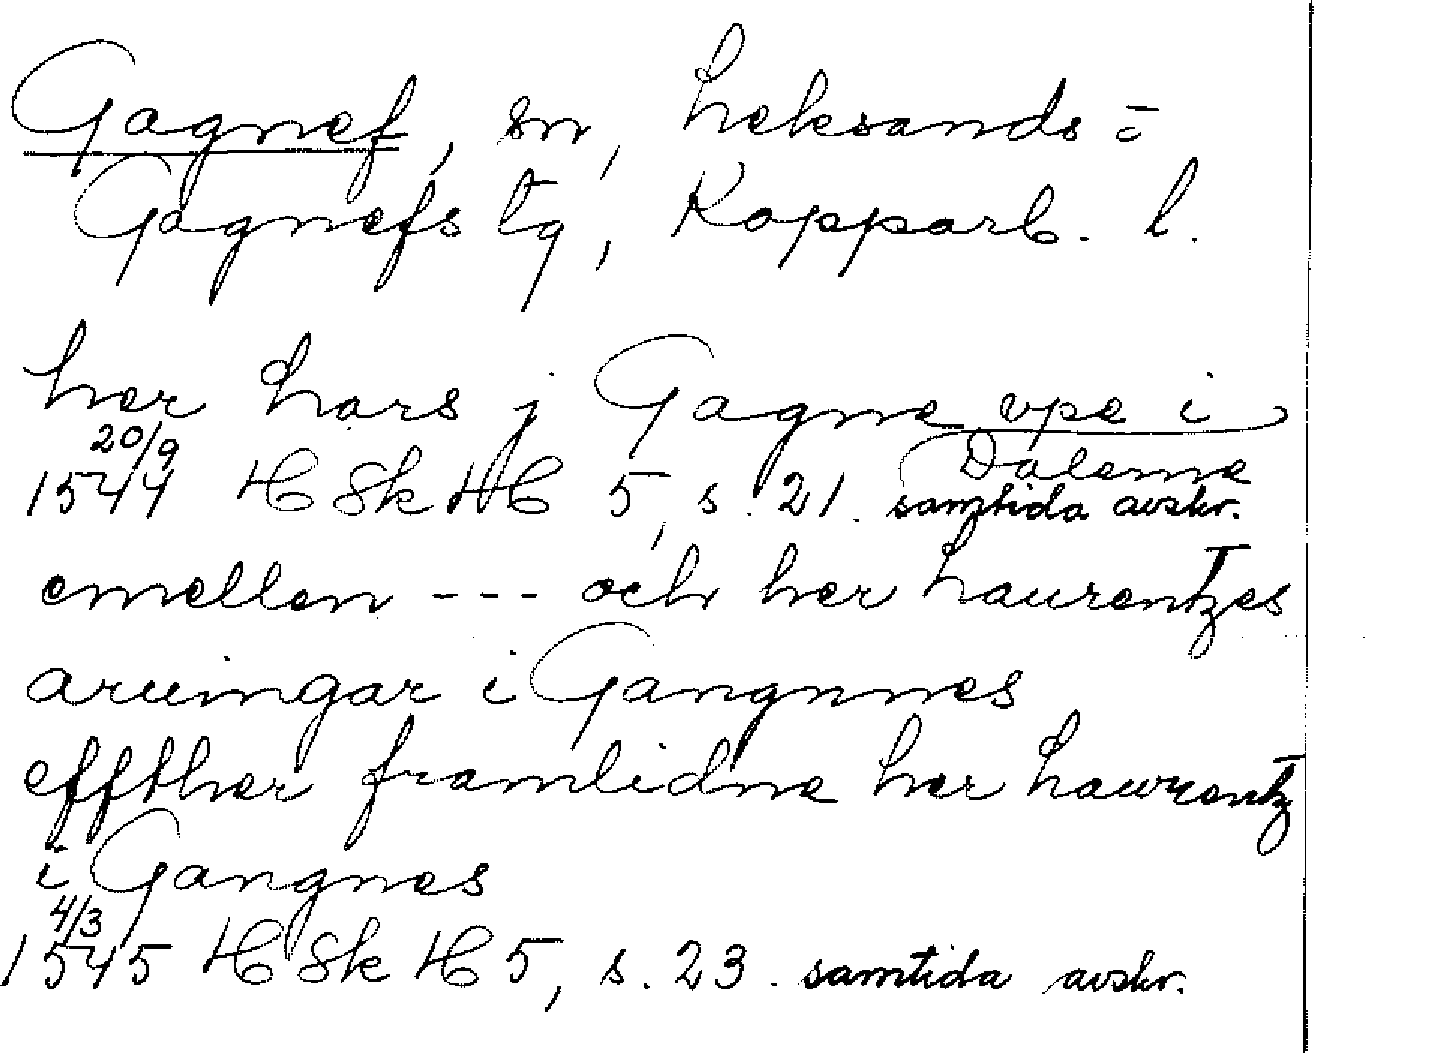 Gagnef, sn, Leksands =
Gagnefs tg, Kopparb. l.
her Lars j Gagne vpe i
Dalerne
20/9
1544 HSkH 5, s. 21. samtida avskr.
emellen --- och her Laurentzes
aruingar i Gangnnes
effther framlidne her Lawrentz
i Gangnes
4/3
1545 HSkH 5, s. 23. samtida avskr.